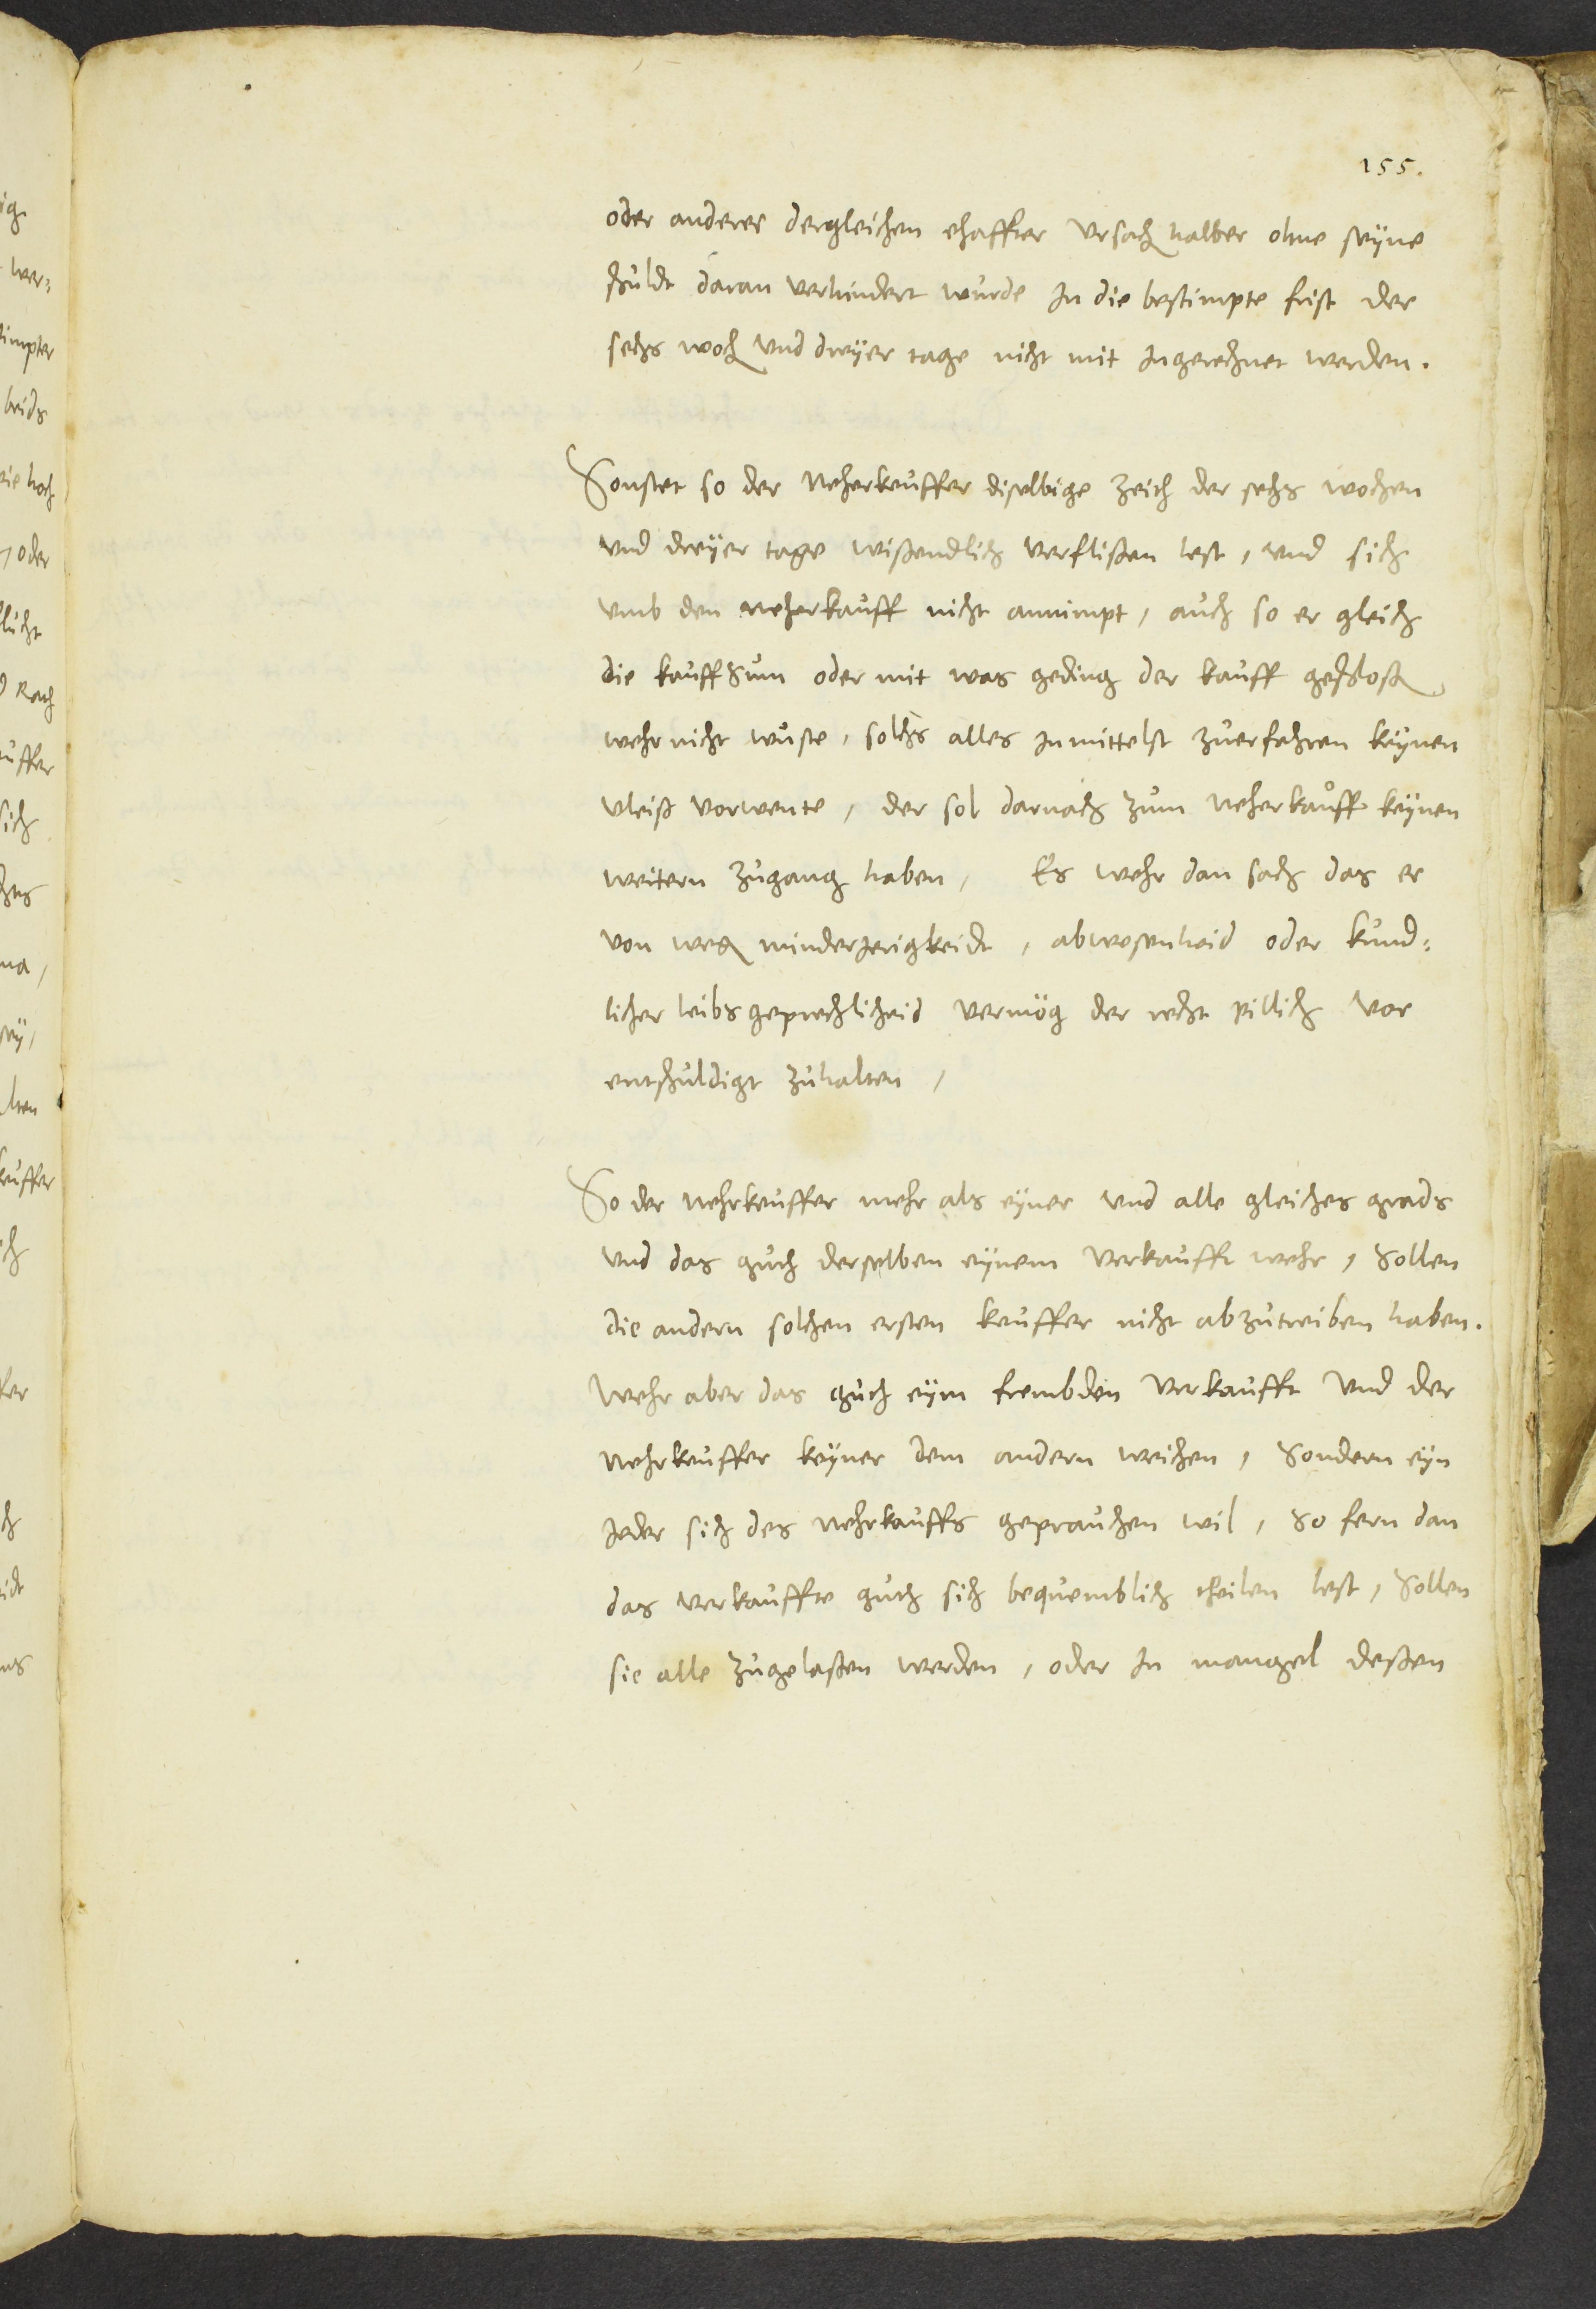 155.
oder anderer dergleichen ehaffter Vrsach halber ohne seÿne
schuldt daran Verhindert wurde In die bestimpte frist der
sechs woch Vnd dreÿer tage nicht mit Ingerechnet werden.
Sonstet so der Neherkeuffer diselbige Zeith der sechs wochen
Vnd dreÿer tage wißendlich Verflißen lest, Vnd sich
Vmb den Neherkauff nicht annimpt, auch so er gleich
die kauffSum oder mit was geding der kauff geschloßen
wehr nicht wuste, solchs alles Inmittelst zuerfahren keÿnen
vleiß Vorwente, der sol darnach zum Neherkauff keÿnen
weitern zugang haben, Es wehr dan sach das er
Von wegen minderJerigkeidt, abwesenheid oder kund=
licher leibs geprechlicheid Vermög der recht pillich Vor
entschuldigt zuhalten,
So der Nehrkeuffer mehr als eÿner Vnd alle gleiches grads
Vnd das guth derselben eÿnem Verkaufft wehr, Sollen
die andern solchen ersten keuffer nicht abzutreiben haben.
Wehr aber das guth eÿm frembden Verkaufft Vnd der
Nehrkeuffer keÿner dem andern weichen, Sondern eÿn
Jeder sich des Nehrkauffs geprauchen wil, So fern dan
das Verkauffte guth sich bequemblich theilen lest, Sollen
sie alle zugelaßen werden, oder In mangel deßen